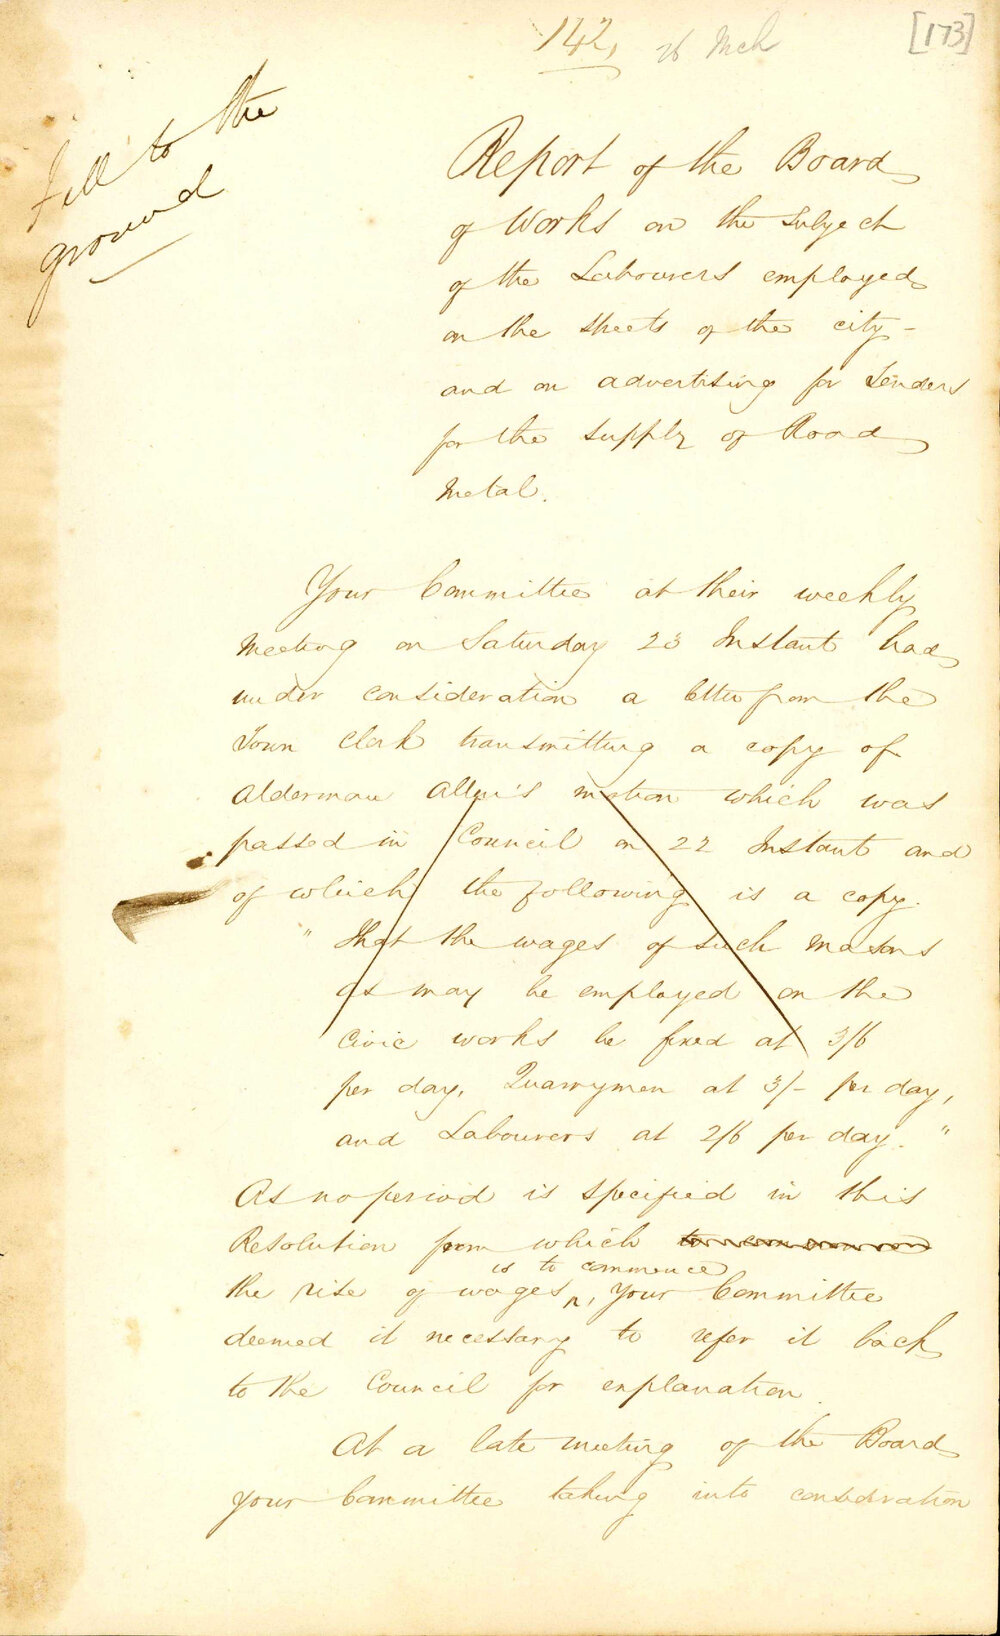 142,
26 Mch
[173]
Fell to the
ground
Report of the Board
of Works on the Subject
of the Labourers employed
on the streets of the city -
and on advertising for Tenders
for the supply of Road
Metal.
Your Committee at their weekly
Meeting on Saturday 23 Instant had
under consideration a letter from the
Town Clerk transmitting a copy of
Alderman Allen's motion which was
passed in Council on 22 Instant and
of which the following is a copy.
" That the wages of such Masons
as may be employed on the
Civic works be fixed at 3/6
per day, Quarrymen at 3/- per day,
and Labourers at 2/6 per day. "
As no period is specified in this
Resolution from which
is to commence
the rise of wages ^, Your Committee
deemed it necessary to refer it back
to the Council for explanation.
At a late meeting of the Board
your Committee taking into consideration